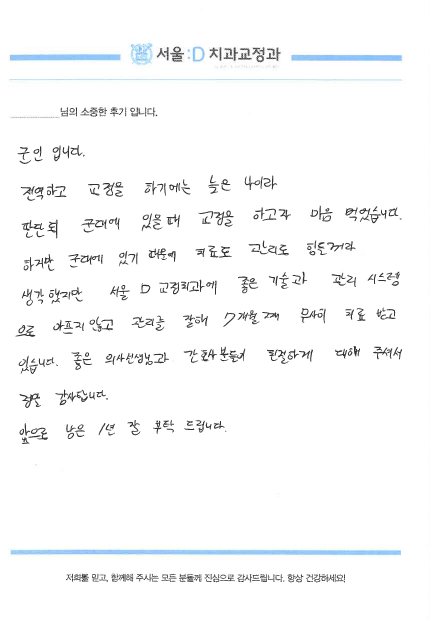 서울:D 치과교정과
님의 소중한 후기 입니다.
군인 입니다.
전역하고 교정을 하기에는 늦은 나이라
판단되 군대에 있을때 교정을 하고자 마음 먹었습니다.
하지만 군대에 있기 때문에 치료도 관리도 힘들거라
생각했지만 서울 D 교정치과에 좋은 기술과 관리 시스템
으로 아프지않고 관리를 잘해 7개월째 무사히 치료 받고
있습니다. 좋은 의사선생님과 간호사분들이 친절하게 대해 주셔서
정말 감사합니다.
앞으로 남은 1년 잘 부탁 드립니다.
저희를 믿고, 함께해 주시는 모든 분들께 진심으로 감사드립니다. 항상 건강하세요!